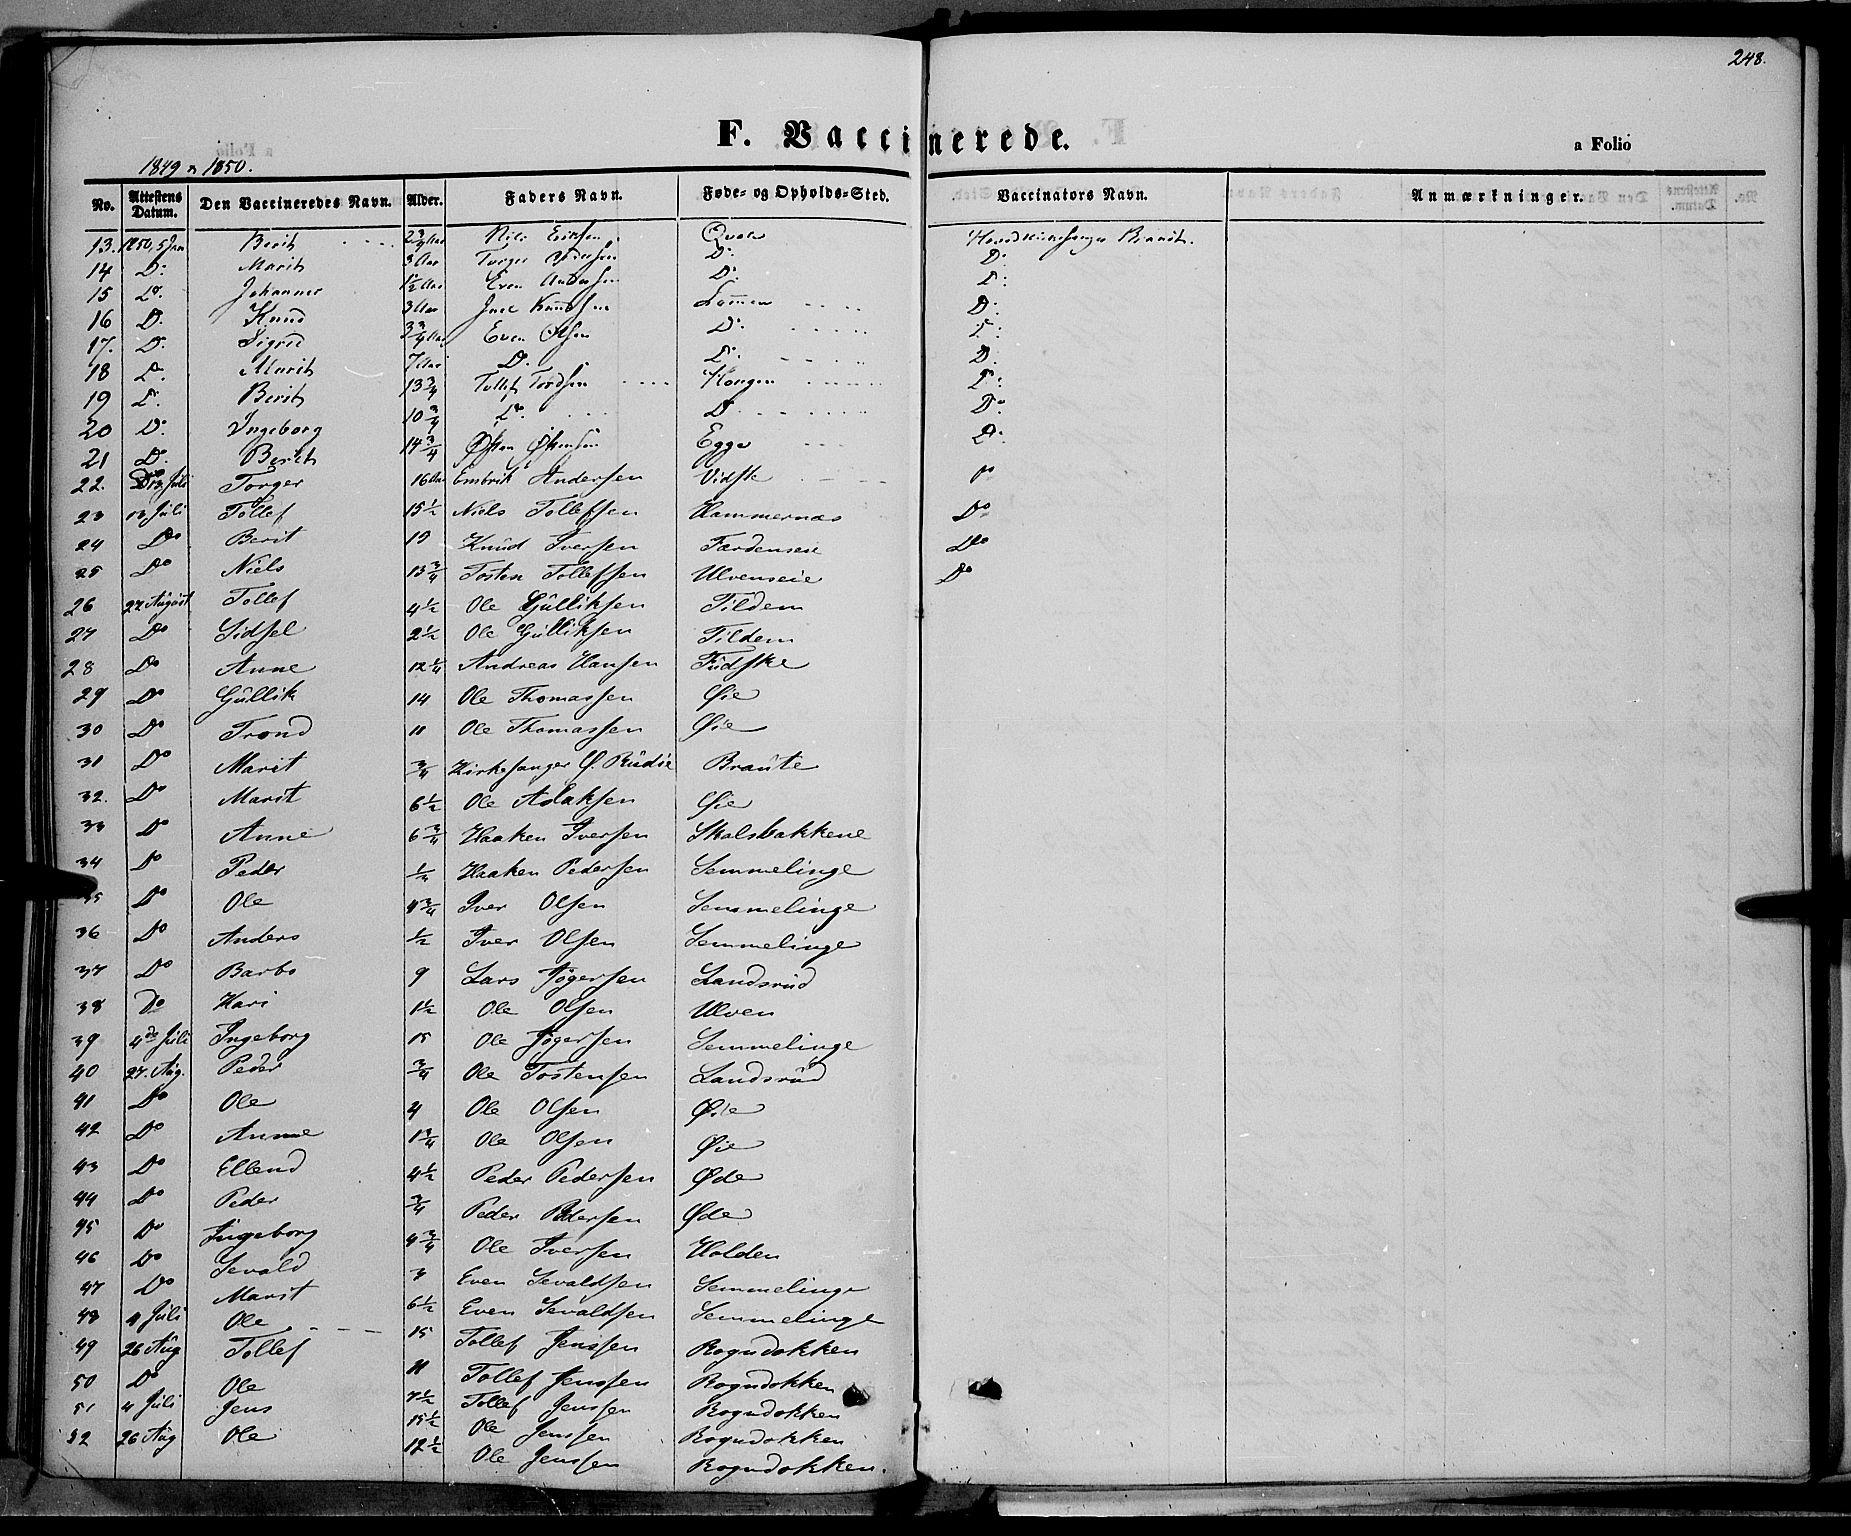 248.
F. Vaccinerede.
a Folio
1849 & 1850.
No. Attestens Datum. Den Vaccineredes Navn. Alder. Faders Navn. Føde- og Opholds-Sted. Vaccinators Navn. Anmærkninger.
13. 1850, 5 Jan Berit 2 3/4 Aar Nils Eriksen Qvale
14 Do Marit 3 Aar Torger Do Do
15 Do Johannes 1 1/2 Aar Even Andersen Do Do
16 Do Knud 3 Aar Knudsen Lommen Do
17. Do Sigrid 3 3/4 Aar Even Olsen Do Do
18 Do Marit 7 Aar Do Do Do
19 Do Berit 13 3/4 Tollef Tordsen Haugen Do
20 Do Ingeborg 10 3/4 Do Do Do
21 Do Berit 14 3/4 Østen Østensen Egge Do
22. 13 Juli Torger 16 Aar Embrik Andersen Vidste Do
23 13 Juli Tollef 15 1/2 Niels Tollefsen Hammernæs Do
24 Do Berit 19 Knud Iversen Færdenseie Do
25 Do Niels 13 3/4 Tosten Tollefsen Ulvenseie Do
26 27 August Tollef 4 1/2 Ole Gulliksen Tildem
27 Do Sidsel 2 1/2 Ole Gulliksen Tildem
28 Do Anne 12 1/4 Andreas Hansen Fudske
29 Do Gullik 14 Ole Thomassen Øie
30 Do Trond 11 Ole Thomassen Øie
31 Do Marit 3/4 Kirkesanger Ø. Rudie Braute
32. Do Marit 6 1/2 Ole Aslaksen Øie
33 Do Anne 6 3/4 Haaken Iversen Skalsbakkene
34 Do Peder 1/4 Haaken Pedersen Semmelinge
35 Do Ole 4 3/4 Iver Olsen Semmelinge
36 Do Anders 1/2 Iver Olsen Semmelinge
37 Do Barbo 9 Lars Jøgersen Landsrud
38 Do Kari 1 1/2 Ole Olsen Ulven
39 4de Juli Ingeborg 15 Ole Jøgersen Semmelinge
40 27. Aug. Peder 3/4 Ole Tostensen Landsrud
41 Do Ole 4 Ole Olsen Øie
42 Do Anne 1 3/4 Ole Olsen Øie
43 Do Ellend 4 1/2 Peder Pedersen Øde
44 Do Peder 3/4 Peder Pedersen Øde
45 Do Ingeborg 4 3/4 Ole Iversen Holden
46 Do Sevald 3 Even Sevaldsen Semmelinge
47 Do Marit 6 1/2 Even Sevaldsen Semmelinge
48 4 Juli Ole 15 Tollef Jenssen Rogndokken
49 26 Aug Tollef 11 Tollef Jenssen Rogndokken
50 Do Ole 7 1/2 Tollef Jenssen Rogndokken
51 4 Juli Jens 15 1/2 Ole Jenssen Rogndokken
52 26 Aug Ole 12 1/2 Ole Jenssen Rogndokken.